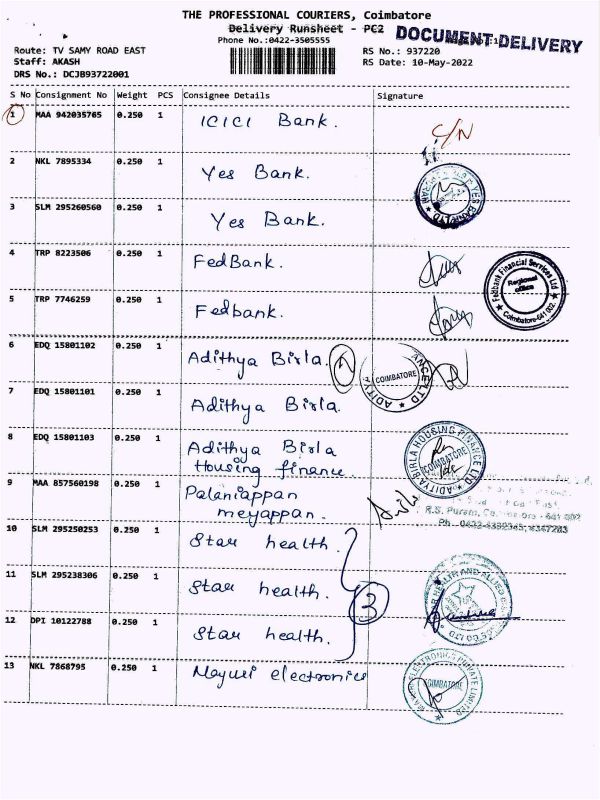 THE PROFESSIONAL COURIERS, Coimbatore
Delivery Runsheet - PC2
DOCUMENT DELIVERY
Phone No.:0422-3505555
Route: TV SAMY ROAD EAST
RS No.: 937220
Staff: AKASH
RS Date: 10-May-2022
DRS No.: DCJB93722001
S No Consignment No Weight PCS Consignee Details Signature
1 MAA 942035765 0.250 1 ICICI Bank.
C/N
2 NKL 7895334 0.250 1 Yes Bank.
YES BANK LTD
3 SLM 295260560 0.250 1 Yes Bank.
4 TRP 8223506 0.250 1 FedBank.
Fedbank Financial Services Ltd
Regional
Office
Coimbatore-641 002.
5 TRP 7746259 0.250 1 Fedbank.
6 EDQ 15801102 0.250 1 Adithya Birla.
COIMBATORE
7 EDQ 15801101 0.250 1 Adithya Birla.
8 EDQ 15801103 0.250 1 Adithya Birla
Housing finance.
ADITYA BIRLA HOUSING FINANCE LTD
COIMBATORE
9 MAA 857560198 0.250 1 Palaniappan
meyappan.
R.S. Puram,
10 SLM 295250253 0.250 1 Star health.
11 SLM 295238306 0.250 1 Star health.
3
12 DPI 10122788 0.250 1 Star health.
13 NKL 7868795 0.250 1 Mayuri electronics
COIMBATORE